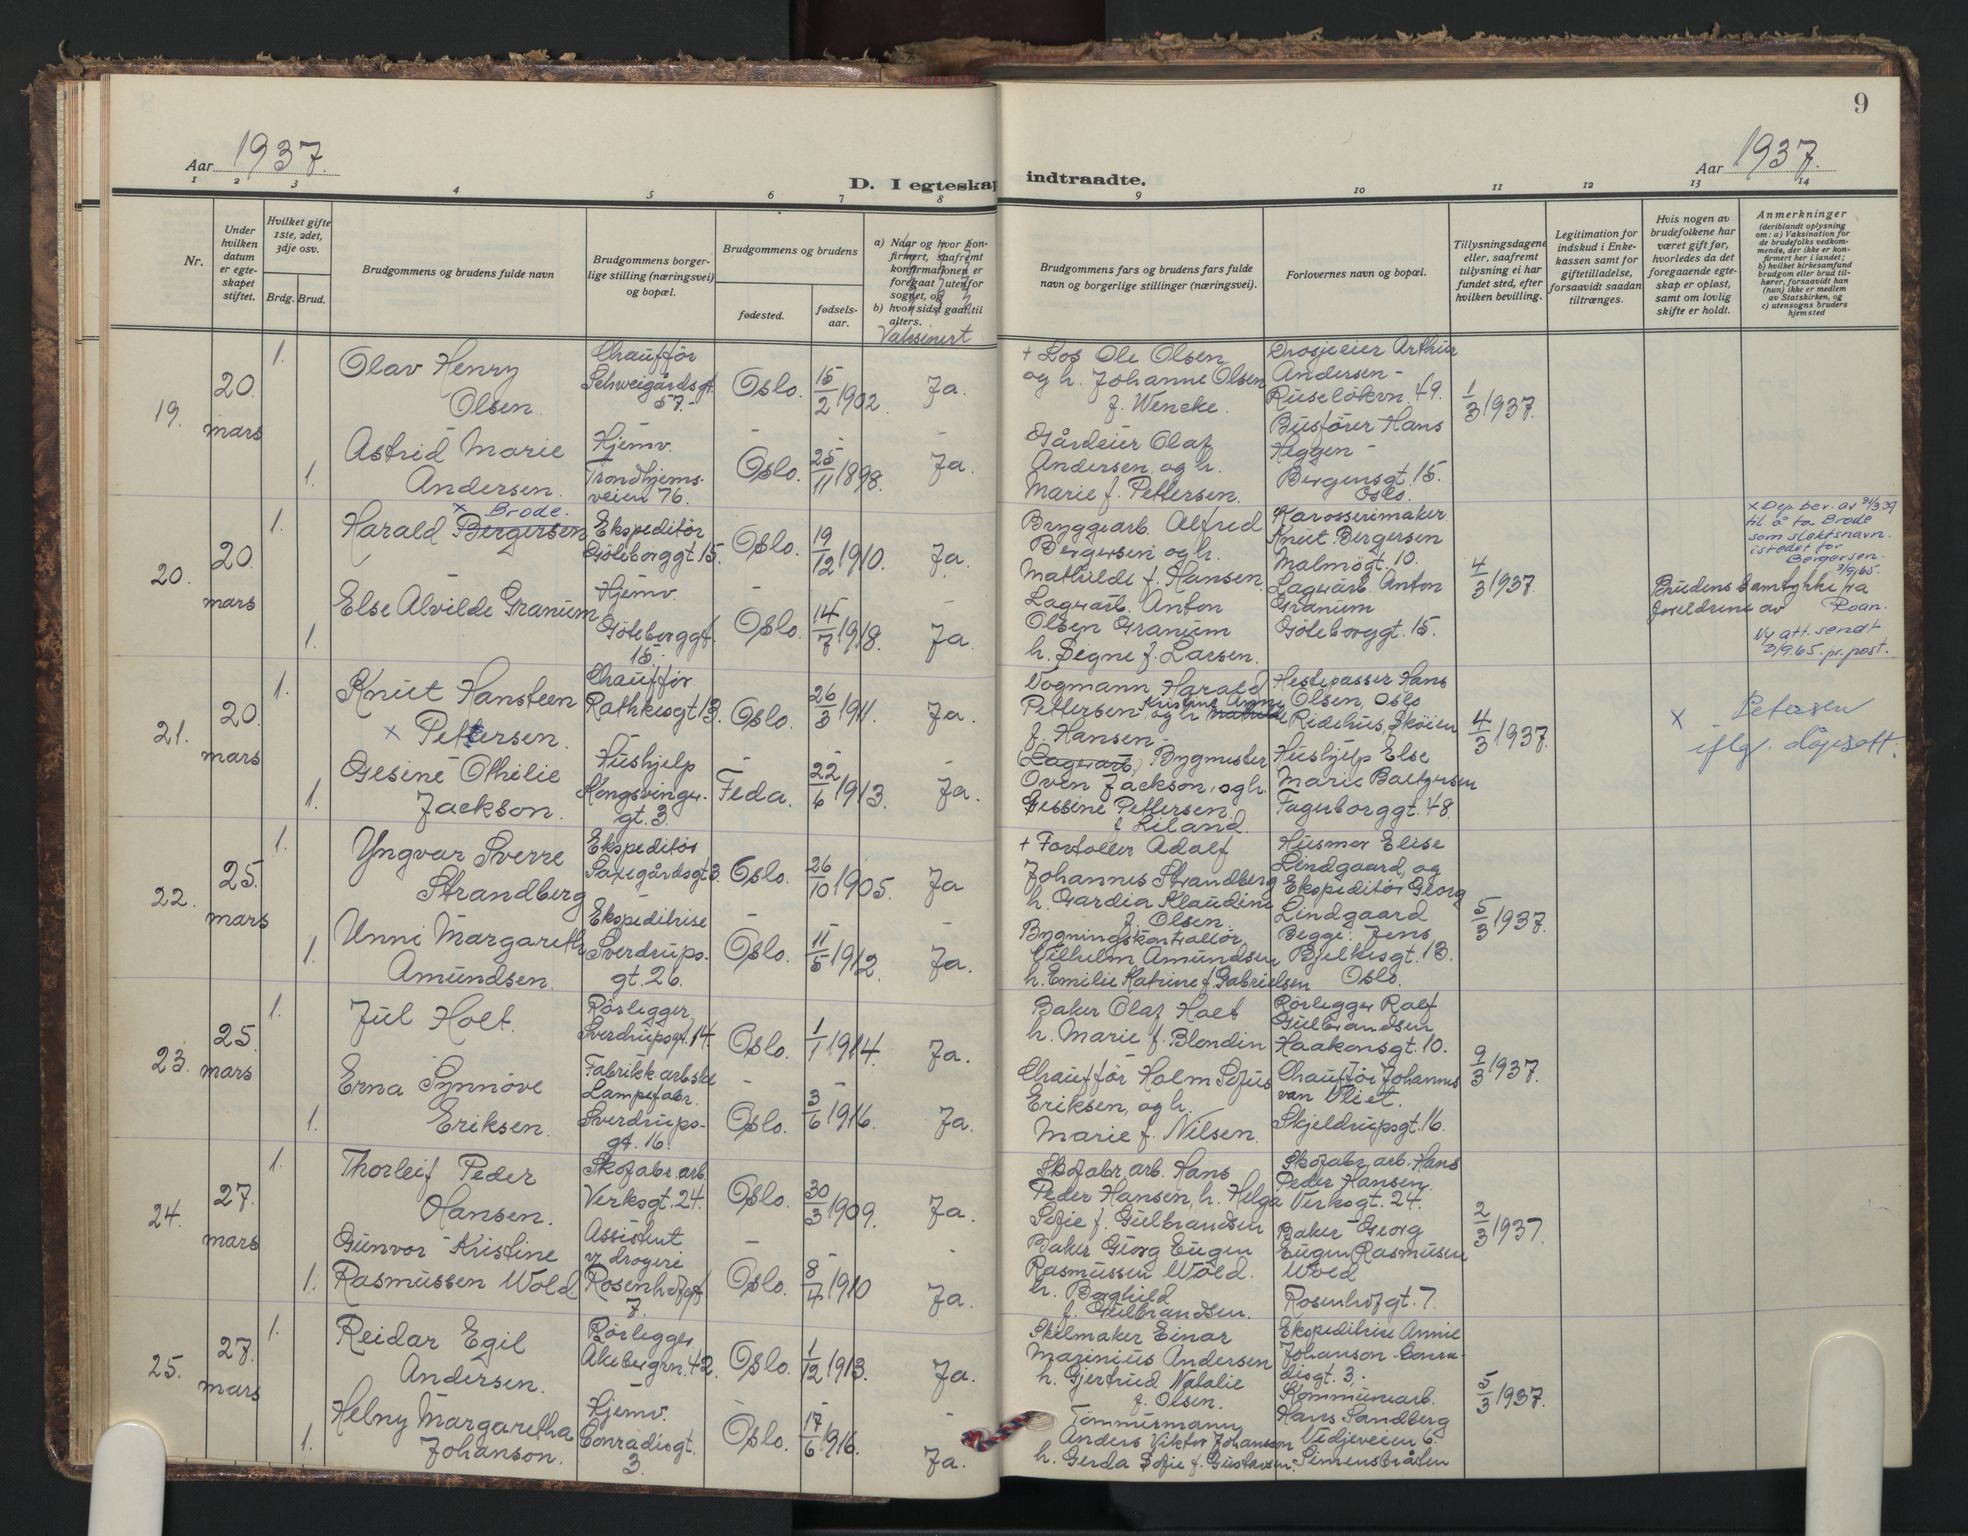 9
Aar 1937.
Aar 1937.
D. I egteskap indtraadte.
1 2 3 4 5 6 7 8 9 10 11 12 13 14
Nr.
Under hvilken datum er egteskapet stiftet.
Hvilket gifte 1ste, 2det, 3dje osv.
Brdg. Brud.
Brudgommens og brudens fulde navn
Brudgommens borgerlige stilling (næringsvei) og bopæl.
Brudgommens og brudens
fødested.
fødselsaar.
a) Naar og hvor konfirmert, saafremt konfirmationen er foregaat utenfor sognet, og
b) hvor sidst gaat til alters.
Vaksinert
Brudgommens fars og brudens fars fulde navn og borgerlige stillinger (næringsvei).
Forlovernes navn og bopæl.
Tillysningsdagene eller, saafremt tillysning ei har fundet sted, efter hvilken bevilling.
Legitimation for indskud i Enkekassen samt for giftetilladelse, forsaavidt saadan tiltrænges.
Hvis nogen av brudefolkene har været gift før, hvorledes da det foregaaende egteskap er opløst, samt om lovlig skifte er holdt.
Anmerkninger
(deriblandt oplysning om: a) Vaksination for de brudefolks vedkommende, der ikke er konfirmert her i landet; b) hvilket kirkesamfund brudgom eller brud tilhører, forsaavidt han (hun) ikke er medlem av Statskirken, og c) utensogns bruders hjemsted
19. 20. mars
1. Olav Henry Olsen.
Chauffør Schweigårdsgt. 57.-
Oslo. 15/2 1902. Ja.
+ Los Ole Olsen og h. Johanne Olsen f. Wencke.
Drosjeeier Arthur Andersen - Ruseløkvn. 49.
Busfører Hans Haggen - Bergensgt. 15. Oslo.
1/3 1937.
1. Astrid Marie Andersen.
Hjemv. Trondhjemsveien 76.
Oslo. 25/11 1898. Ja.
Gårdeier Olaf Andersen, og h. Marie f. Pettersen.
20. 20. mars
1. Harald Bergersen x Brode.
Ekspeditør Göteborggt. 15.
Oslo. 19/12 1910. Ja.
Bryggearb. Alfred Bergersen og h. Mathilde f. Hansen.
Karosserimaker Knut Bergersen Malmøgt. 10.
Lagerarb. Anton Granum Göteborggt. 15.
4/3 1937.
Brudens samtykke fra foreldrene av Roan.
x Dep. bev. av 31/3.39 til å ta Brode som slektsnavn. istedet for Bergersen. 3/9.65.
Ny att. sendt 3/9.65. pr. post.
1. Else Alvilde Granum
Hjemv. Göteborggt. 15.
Oslo. 14/7 1918. Ja.
Lagerarb. Anton Olsen Granum h. Signe f. Larsen.
21. 20. mars
1. Knut Hansteen x Pettersen.
Chauffør Rathkesgt 13.
Oslo. 26/3 1911. Ja.
Vogmann Harald Pettersen, og h. Kristine f. Hansen -
Hestepasser Hans Olsen, Oslo Ridehus, Skøien
Hushjelp Else Marie Baltzersen Fagerborggt. 48.
4/3 1937.
x Petersen iflg. dåpsatt.
1. Gesine Othelie Jackson.
Hushjelp Kongsvingergt. 3.
Feda. 22/6 1913. Ja.
Lagerarb, Bygmester Oven Jackson, og h. Gessine Pettersen, f. Liland.
22. 25. mars
1. Yngvar Sverre Strandberg
Ekspeditør Saxegårdsgt 3.
Oslo. 26/10 1905. Ja
+ Fortoller Adolf Johannes Strandberg h. Gardia Klaudine f. Olsen.
Husmor Elise Lindgaard, og Ekspeditør Georg Lindgaard Begge: Jens Bjelkesgt. 13. Oslo.
5/3 1937.
1. Unni Margareth Amundsen.
Ekspeditrise Sverdrupsgt. 26.
Oslo. 11/5 1912. Ja.
Bygningskontrollør Vilhelm Amundsen h. Emilie Katrine f. Gabrielsen
23. 25. mars
1. Jul Holt.
Rørlegger, Sverdrupsgt. 14.
Oslo. 1/1 1914. Ja.
Baker Olaf Holt h. Marie f. Blondin
Rørlegger Ralf Gulbrandsen Haakonsgt. 10.
Chauffør Johannes van Vliet. Skjeldrupsgt. 16.
9/3 1937.
1. Erna Synnöve Eriksen.
Fabrikkarbske Lampefabr. Sverdrupsgt. 16.
Oslo. 3/6 1916. Ja.
Chauffør Holm Sofus Eriksen, og h. Marie f. Nilsen.
24. 27. mars
1. Thorleif Peder Hansen.
Skofabr. arb. Verksgt. 24.
Oslo. 30/3 1909. Ja.
Skofabr. arb. Hans Peder Hansen, h. Helga Sofie f. Gulbrandsen
Skofabr. arb. Hans Peder Hansen. Verksgt. 24.
Baker Georg Eugen Rasmusen Wold Rosenhofgt. 7.
2/3 1937.
1. Gunvor Kristine Rasmussen Wold
Assistent v/ drogeri Rosenhofgt 7.
Oslo. 8/4 1910 Ja.
Baker Georg Eugen Rasmussen Wold. h. Borghild f. Gulbrandsen.
25. 27. mars
1. Reidar Egil Andersen.
Rørlegger Akebergvn. 42.
Oslo. 1/12 1913. Ja.
Skilmaker Einar Marinius Andersen h. Gjertrud Natalie f. Olsen.
Ekspeditrise Annie Johanson - Conradisgt. 3. -
Kommunearb. Hans Sandberg Vidjeveien 6. Simensbråten
5/3 1937.
1. Helny Margaretha Johanson.
Hjemv. Conradisgt. 3.
Oslo. 17/6 1916. Ja.
Tømmermann Anders Viktor Johansson h. Gerda Sofie f. Gustavsen.